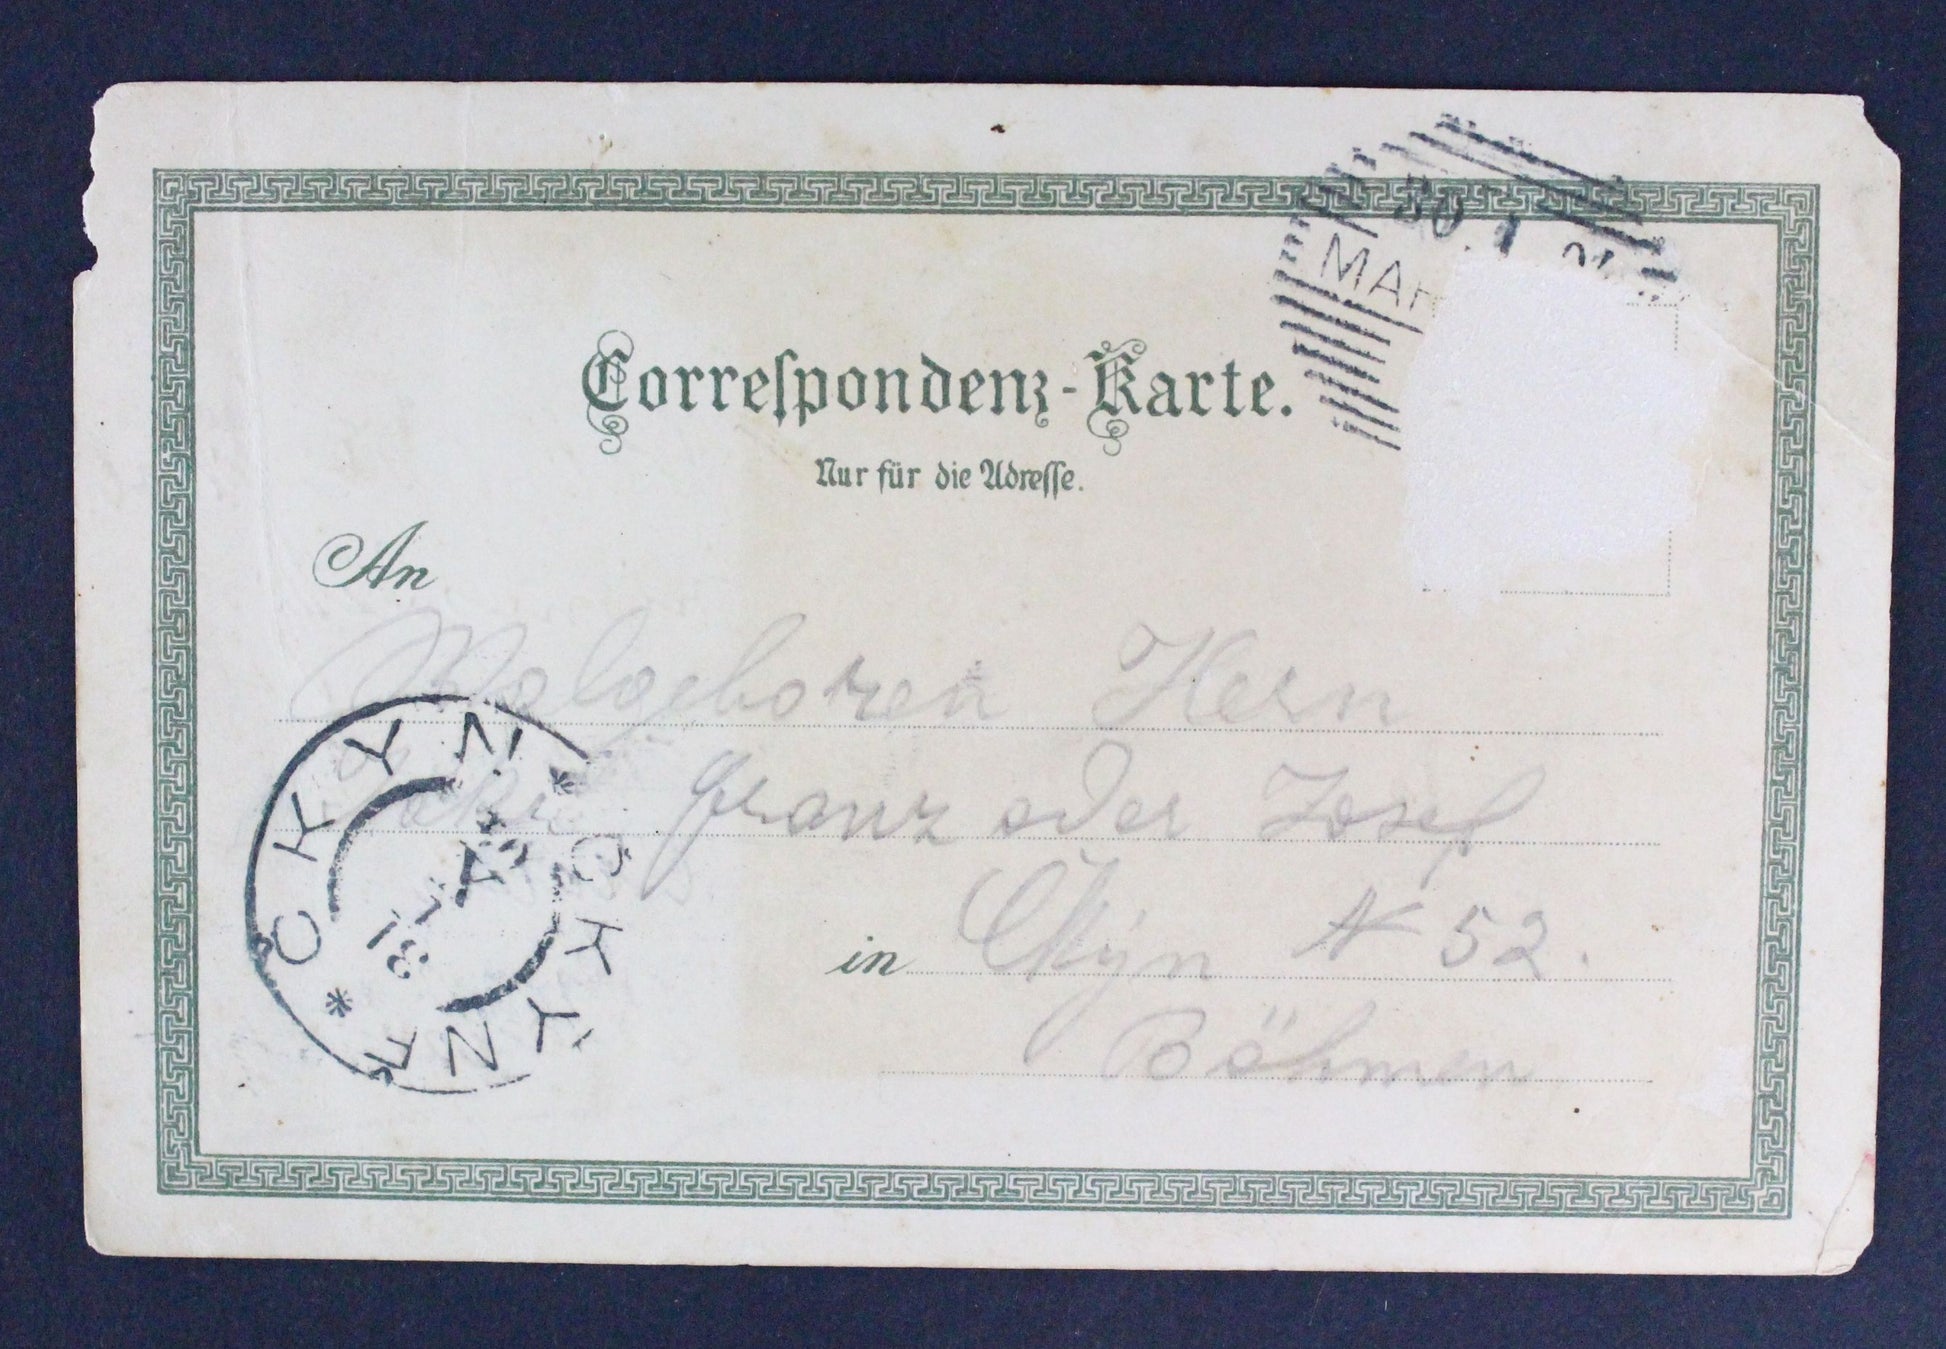 30. 1
MAH
Correspondenz-Karte.
Nur für die Adresse.
An
Wolgeboren Herrn
Franz oder Josef
in Čkýn N 52.
Böhmen
ČKYN * ČKÝNĚ *
31 1